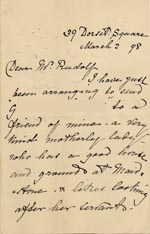 39 Dorset Square
March 2 98
Dear Mr. Rudolf,
I have just
been arranging to send
G to a
friend of mine. a very
kind motherly lady
who has a good house
and grounds at Maid-
stone. & likes looking
after her servants.